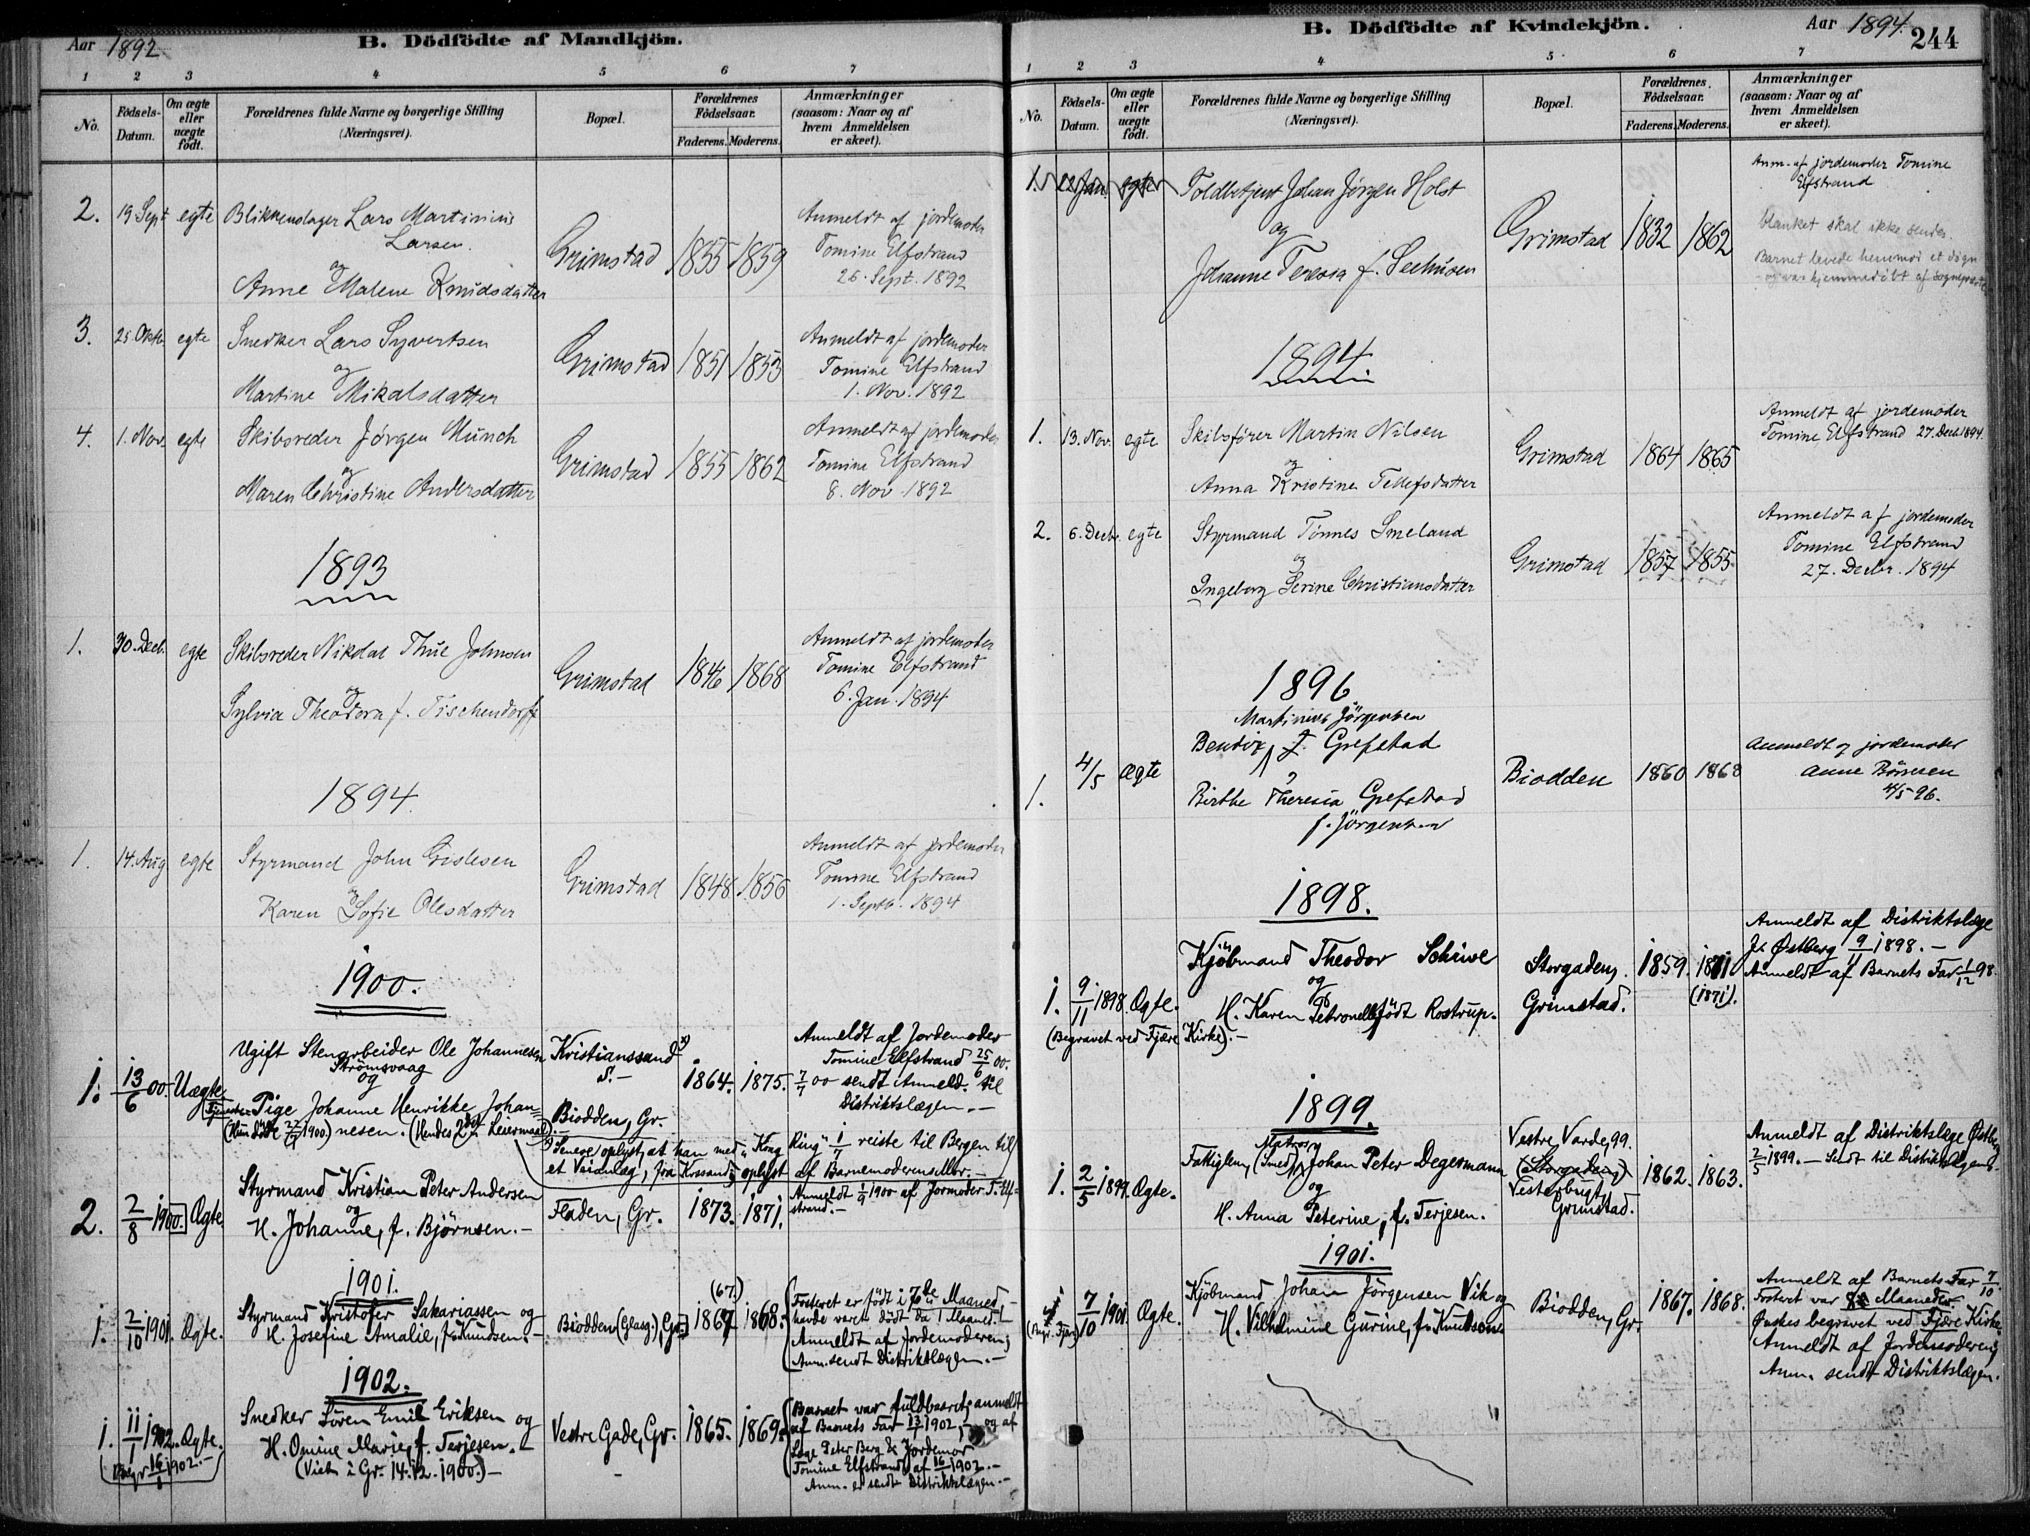 Aar 1892
B. Dödfödte af Mandkjön.
1 2 3 4 5 6 7
No.
Födsels-Datum.
Om ægte eller uægte födt.
Forældrenes fulde Navne og borgerlige Stilling (Næringsvei).
Bopæl.
Forældrenes Födselsaar.
Faderens. Moderens.
Anmærkninger (saasom: Naar og af hvem Anmeldelsen er skeet).
2. 19 Sept egte Blikkenslager Lars Martinius Larsen
og
Anne Malene Knudsdatter
Grimstad 1855 1859
Anmeldt af jordemoder
Tomine Elfstrand
26. Sept. 1892
3. 25 Oktb. egte Snedker Lars Syvertsen
og
Martine Mikalsdatter
Grimstad 1851 1853
Anmeldt af jordemoder
Tomine Elfstrand
1. Nov. 1892
4. 1. Nov. egte Skibsreder Jørgen Munch
og
Maren Christine Andersdatter
Grimstad 1855 1862
Anmeldt af jordemoder
Tomine Elfstrand
8. Nov. 1892
1893
1. 30. Decb. egte Skibsreder Nikolai Thue Johnsen
og
Sylvia Theodora f. Tischendorff
Grimstad 1846 1868
Anmeldt af jordemoder
Tomine Elfstrand
6. Jan. 1894
1894.
1. 14. Aug egte Styrmand John Gislesen
og
Karen Sofie Olesdatter
Grimstad 1848. 1856
Anmeldt af jordemoder
Tomine Elfstrand
1. Septb. 1894
1900.
1. 13/6 00. Uægte. Ugift Stenarbeider Ole Johannesen
Strömsvaag
og
Pige Johanne Henrikke Johan=
nesen. (Hendes 2det Leiermaal).
(Hun døde 1900.)
Kristianssand
S.-
Biodden, Gr.
1864. 1875.
Anmeldt af Jordemoder
Tomine Elfstrand 25/6 00.
7/7 00 sendt Anmeld. til
Distriktslægen.-
Senere oplyst, at han med "Kong Ring" 1/7 reiste til Bergen til
et Veianlæg, fra Krssand, oplyst af Barnemoderens
2. 2/8 1900. Ægte. Styrmand Kristian Peter Andersen
og
H. Johanne, f. Bjørnsen.-
Fladen, Gr. 1873. 1871.
Anmeldt 1/9 1900 af Jormoder T. Elf=
strand.-
1901.
1. 2/10 1901. Ægte. Styrmand Kristofer Sakariassen og
H. Josefine Amalie, f. Knudsen.-
Biodden, Gr. 1867 (67.) 1868.
Fosteret er født i 7de Maaned
havde været dødt da 1 Maaned.
Anmeldt af Jordemoderen;
Anm. sendt Distriktslægen.-
1902.
1. 11/1 1902. Ægte. Snedker Søren Emil Eriksen og
H. Omine Marie, f. Terjesen.-
(Viet i Gr. 14.12.1900.)-
Begr 16/1 1902.-
Vestre Gade, Gr. 1865. 1869.
Barnet var fuldbaaret; anmeldt
af Barnets Far 13/1 1902, og af
Læge Peter Berg & Jordemor
Tomine Elfstrand, af 16/1 1902.-
Anm. er sendt Distriktslægen.-
B. Dödfödte af Kvindekjön.
Aar 1894.
244
1 2 3 4 5 6 7
No.
Födsels-Datum.
Om ægte eller uægte födt.
Forældrenes fulde Navne og borgerlige Stilling (Næringsvei).
Bopæl.
Forældrenes Födselsaar.
Faderens. Moderens.
Anmærkninger (saasom: Naar og af hvem Anmeldelsen er skeet).
1. 22 Jan. egte Toldbetjent Johan Jørgen Holst
og
Johanne Teresia f. Seehusen
Grimstad 1832 1862
Anm. af jordemoder Tomine
Elfstrand
blanket skal ikke sendes.
Barnet levede henimod et døgn
og var hjemmedøbt af sognepræsten
1894
1. 13. Nov. egte Skibsfører Martin Nilsen
og
Anna Kristine Tellefsdatter
Grimstad 1864 1865
Anmeldt af jordemoder
Tomine Elfstrand 27. Decb. 1894.
2. 6. Decbr. egte Styrmand Tønnes Smeland
og
Ingeborg Serine Christiansdatter
Grimstad 1857 1855
Anmeldt af jordemoder
Tomine Elfstrand
27. Decbr. 1894
1896
Martinius Jörgensen
1. 4/5 Ægte Bendix f. Grefstad
Birthe Theresia Grefstad
f. Jörgensen
Biodden 1860 1868
Anmeldt af jordemoder
Anne Börresen
96.
1898.
1. 9/11 1898. Ægte. Kjöbmand Theodor Schiwe
og
H. Karen Petronelle, født Rostrup.
(Begravet ved Fjære Kirke).-
Storgaden,
Grimstad.
1859. 1871
(1871).
Anmeldt af Distriktslæge
J. Østberg 9/11 1898.-
Anmeldt af Barnets Far 1/12 98.
1899.
1. 2/5 1899. Ægte. Matros
Fattiglem, (Smed), Johan Peter Degermann
og
H. Anna Peterine, f. Terjesen.
Vestre Varde, 99.
(Storgaden)
Vesterbugt,
Grimstad.
1862. 1863.
Anmeldt af Distriktslæge Østberg
2/5 1899.- Sendt til Distriktslægen.
1901.
7/10 1901. Ægte. Kjöbmand Johan Jörgensen Vik og
H. Vilhelmine Gurine, f. Knudsen.
(Begr. Fjære)
Biodden, Gr. 1867. 1868.
Anmeldt af Barnets Far 7/10
Fosteret var 8 Maaneder
Ønskes begravet ved Fjære Kirke.
Anmeldt af Jordemoderen;
Anm. sendt Distriktslægen.